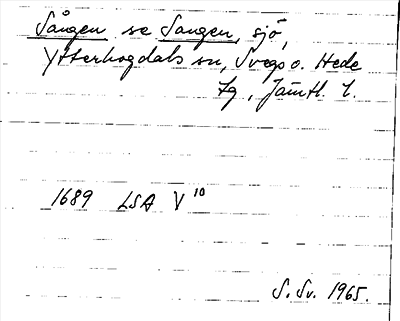 Sången se Sangen, sjö,
Ytterhogdals sn, Svegs o. Hede
tg, Jämtl. l.
1689 LSA V 10
S. Sv. 1965.